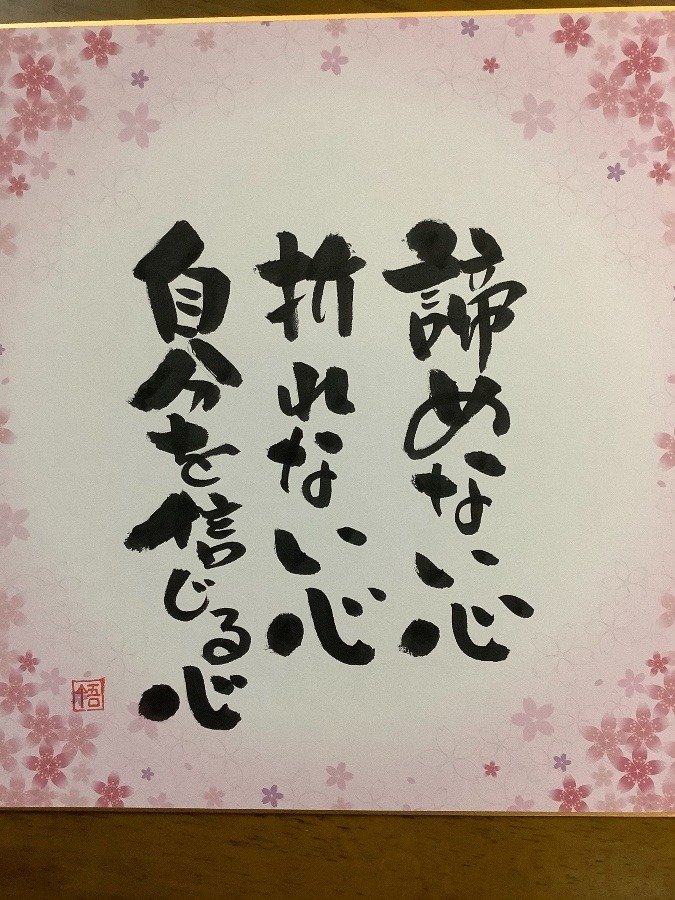 諦めない心
折れない心
自分を信じる心
悟